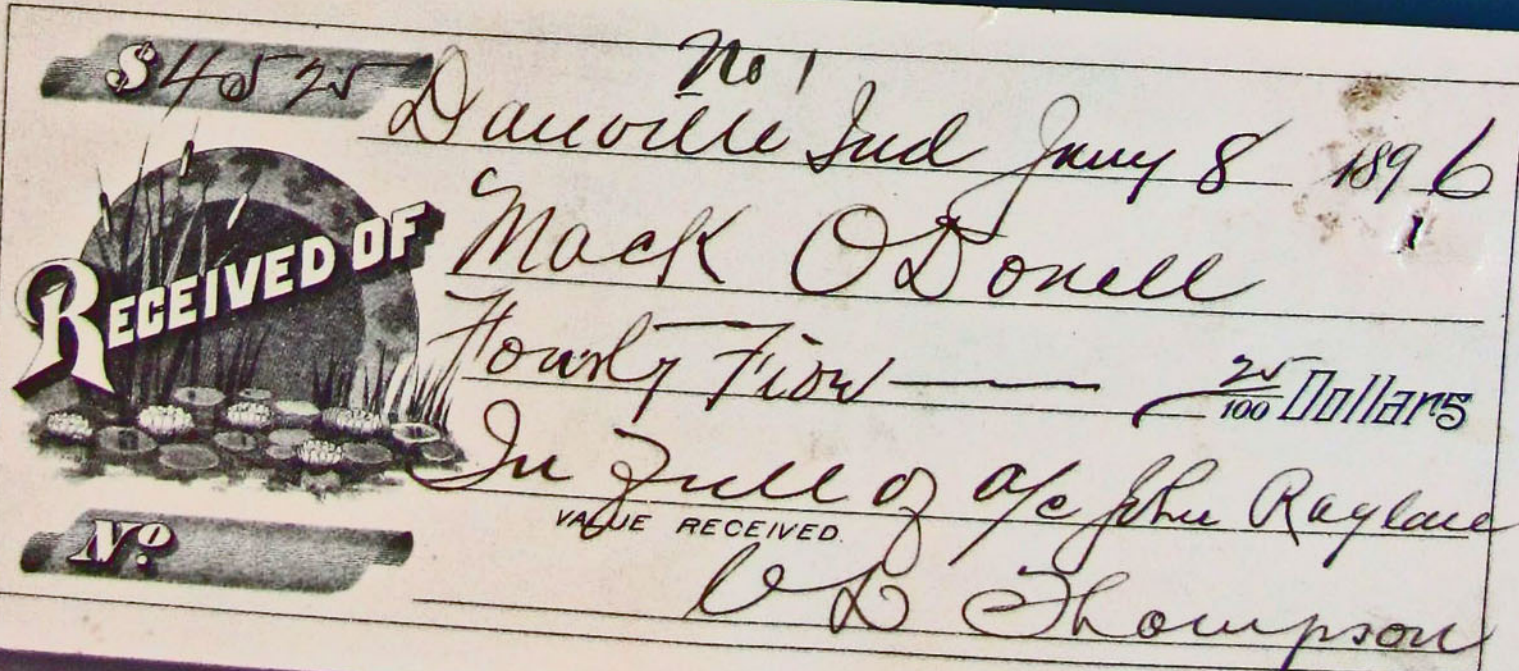 No 1
$45 25
Danville Ind Jany 8 1896
1
RECEIVED OF Mack ODonell
Fourty Five 25/100 Dollars
In Full of a/c John Ragland
VALUE RECEIVED.
Thompson
No.